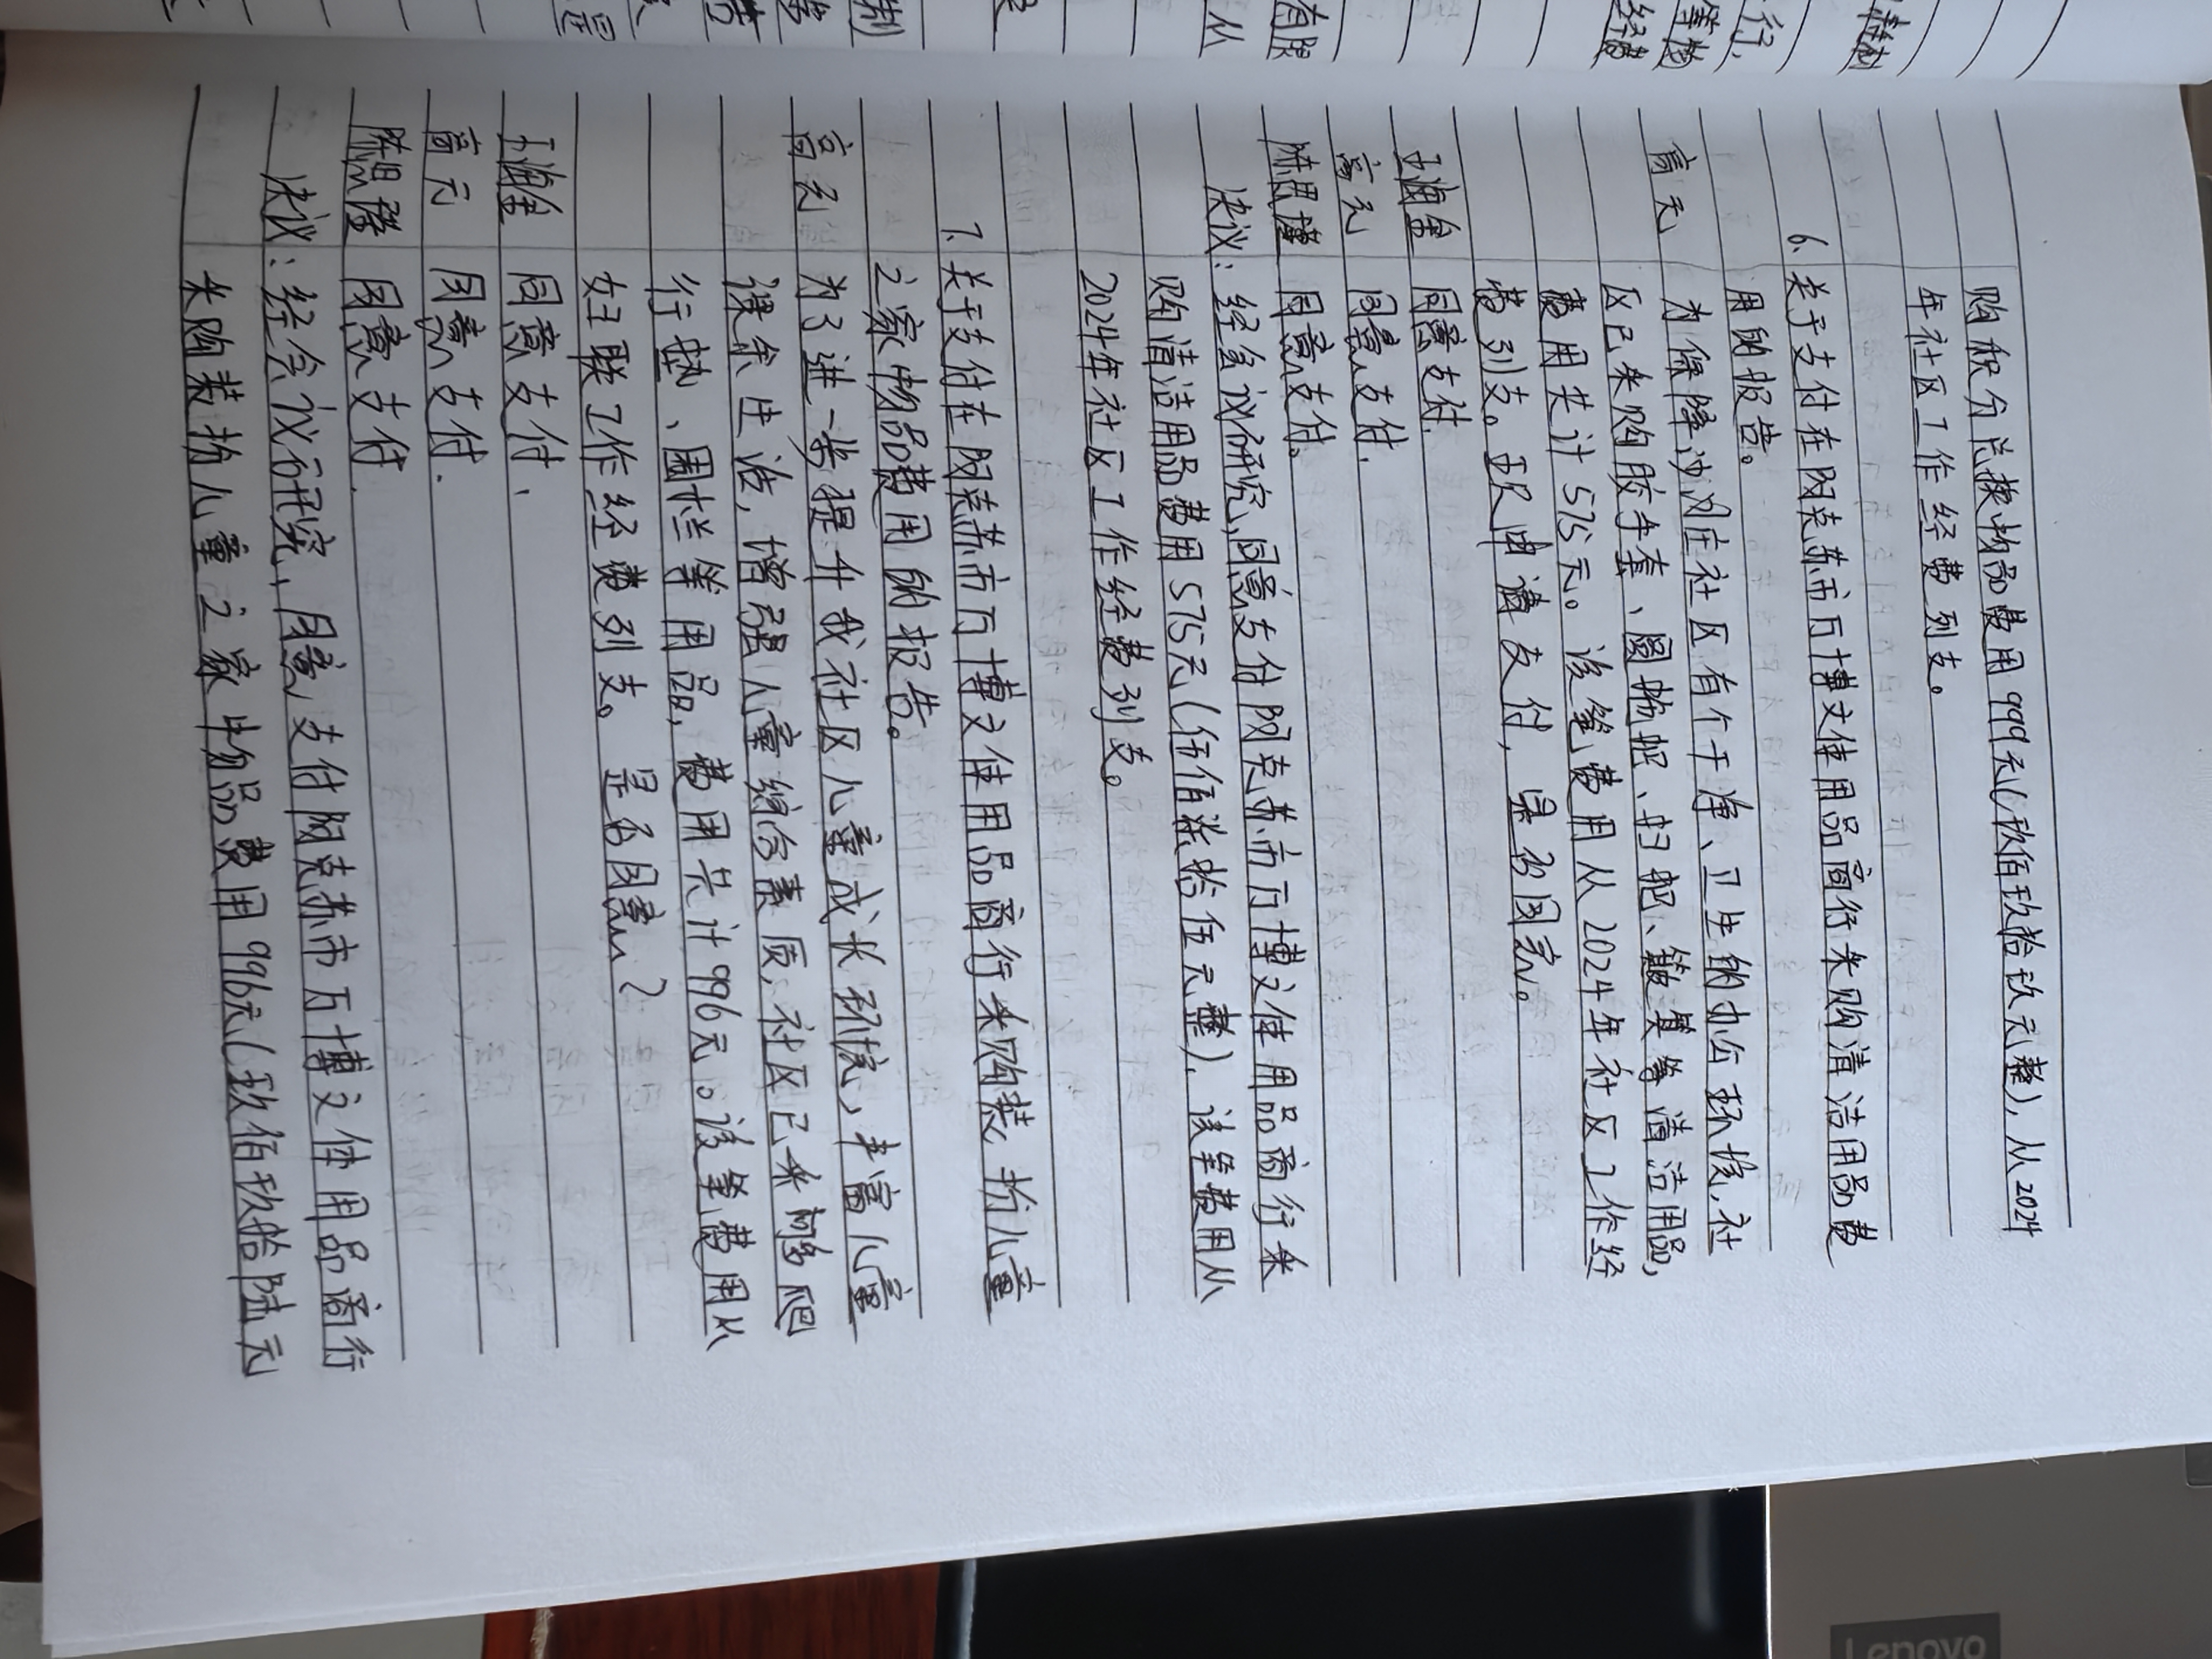 购积分兑换物品费用999元(玖佰玖拾玖元整),从2024
年社区工作经费列支。
6、关于支付在阿克苏市万博文体用品商行采购清洁用品费
用的报告。
高元 为保障社区有个干净、卫生的办公环境,社
区已采购胶手套、圆拖把、扫把、簸箕等清洁用品,
费用共计575元。该笔费用从2024年社区工作经
费列支。现申请支付,是否同意。
同意支付.
高元 同意支付.
陈思 同意支付。
决议:经会议研究,同意支付阿克苏市万博文体用品商行采
购清洁用品费用575元(伍佰柒拾伍元整),该笔费用从
2024年社区工作经费列支。
7、关于支付在阿克苏市万博文体用品商行采购装扮儿童
之家物品费用的报告。
高元 为了进一步提升我社区儿童成长环境,丰富儿童
课余生活,增强儿童综合素质,社区已采购爬
行垫、围栏等用品,费用共计996元。该笔费用从
妇联工作经费列支。是否同意?
同意支付.
高元 同意支付.
陈思 同意支付.
决议:经会议研究,同意支付阿克苏市万博文体用品商行
采购装扮儿童之家物品费用996元(玖佰玖拾陆元
Lenovo